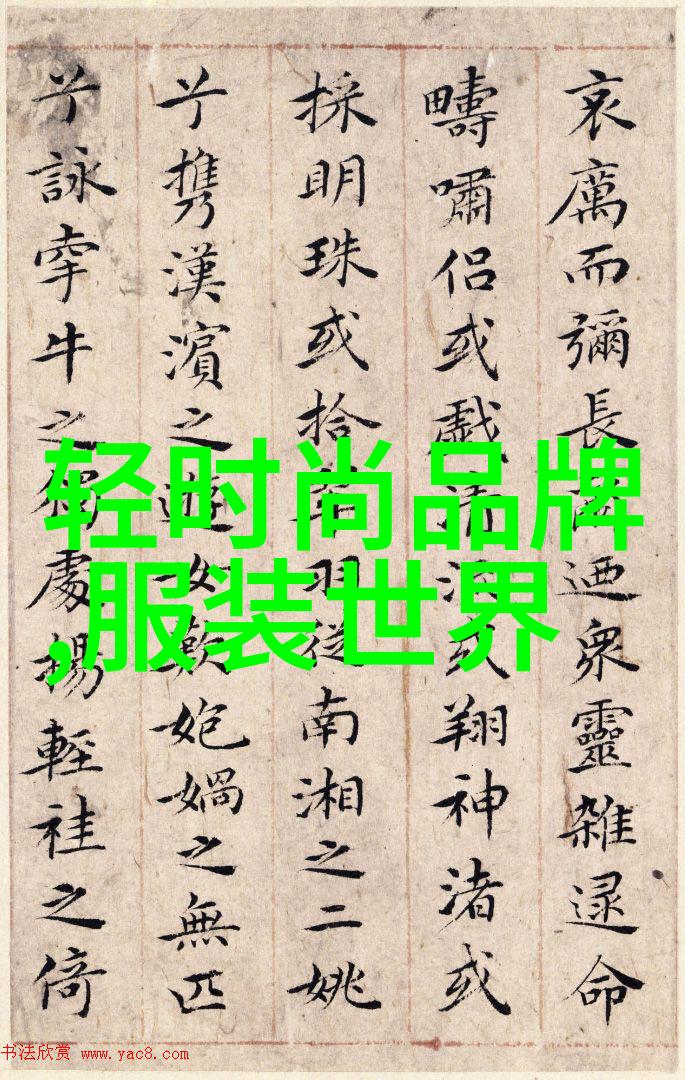 哀厲而彌長迺衆靈雜遝命
疇嘯侶或戲清流或翔神渚或
採明珠或拾翠羽從南湘之二姚
兮攜漢濱之遊女歎媧之無匹
兮詠牽牛之獨處揚輕袿之倚
轻时尚品牌
,服装世界
书法欣赏 www.yac8.com